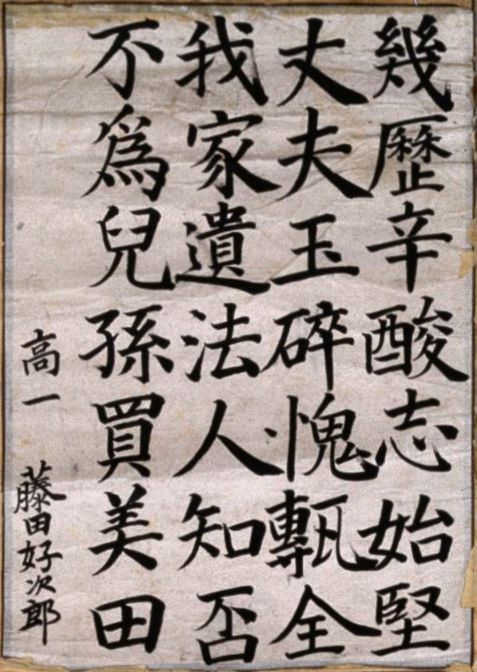 幾歷辛酸志始堅
丈夫玉碎愧甎全
我家遺法人知否
不爲兒孫買美田
高一 藤田好次郎